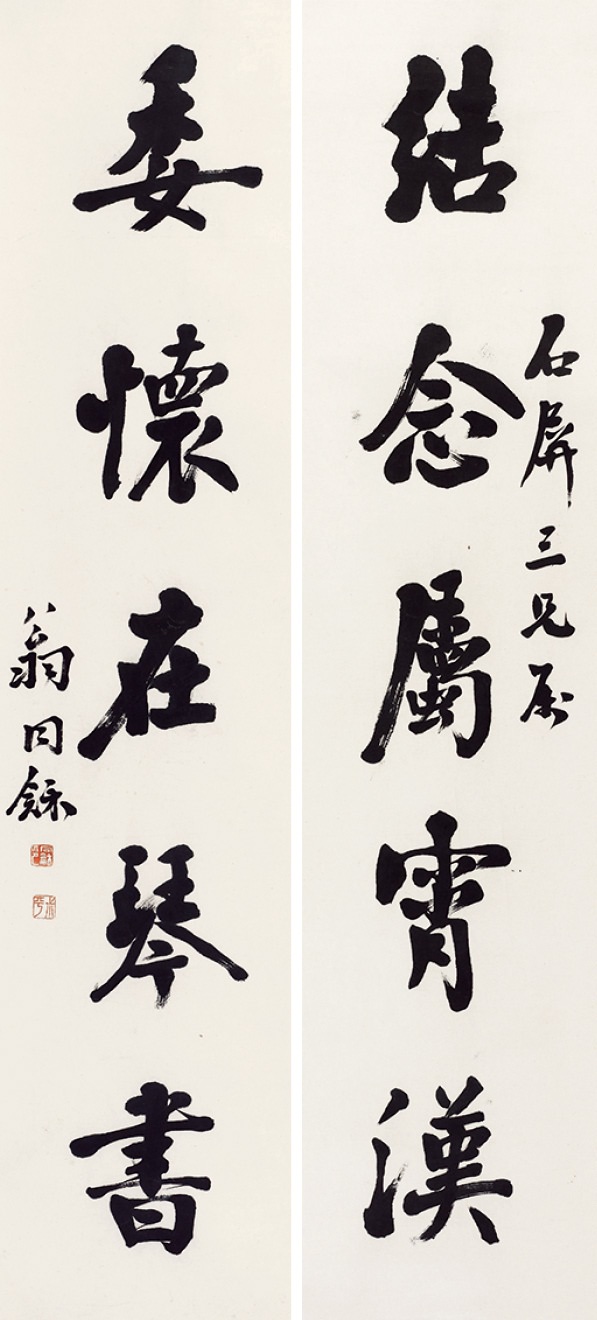 結念屬霄漢
石屏三兄属
委懷在琴書
翁同龢